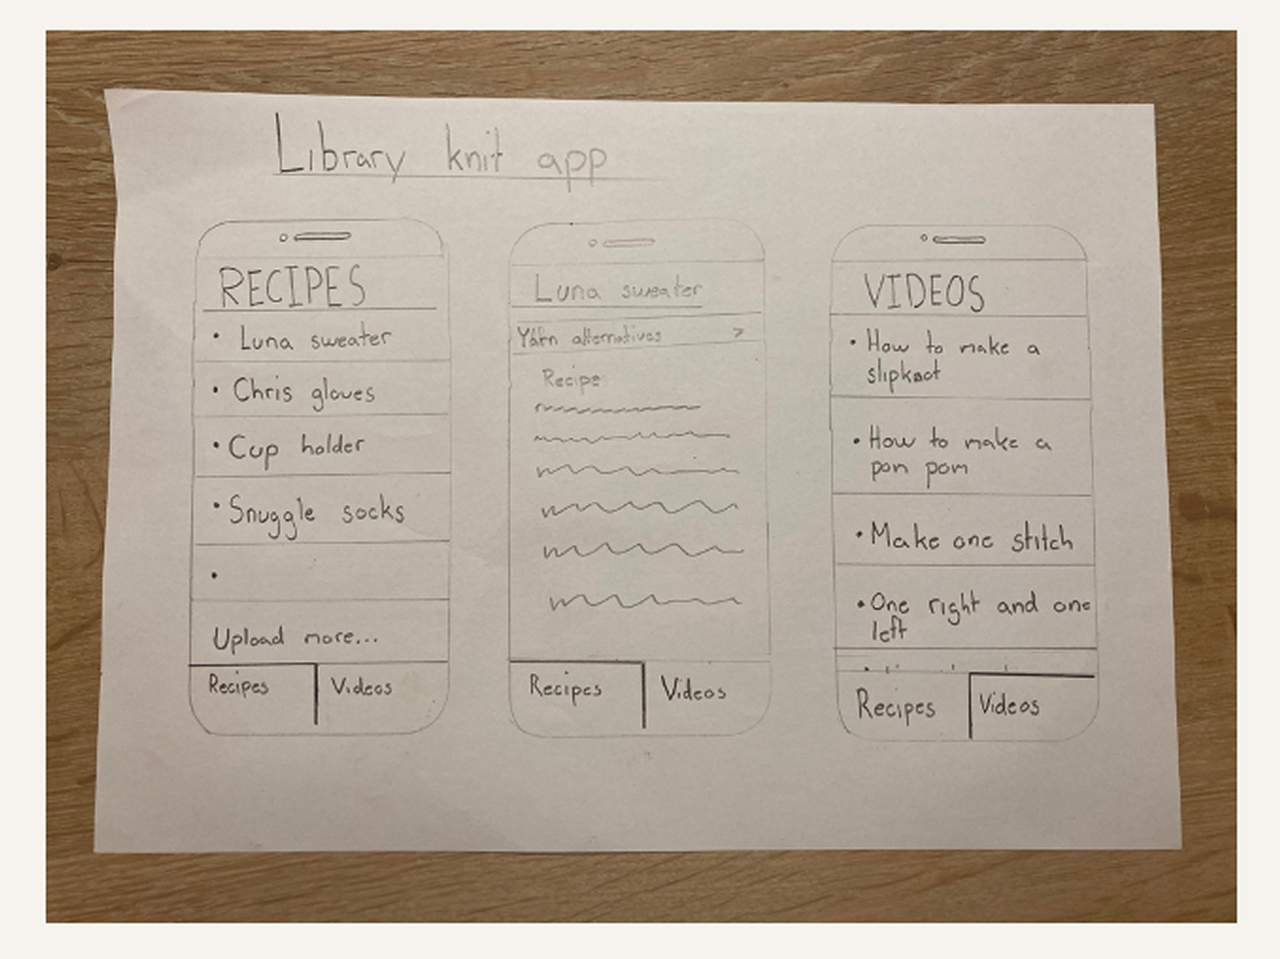 Library knit app
RECIPES
• Luna sweater
• Chris gloves
• Cup holder
• Snuggle socks
•
Upload more...
Recipes
Videos
Luna sweater
Yarn alternatives >
Recipe:
Recipes
Videos
VIDEOS
• How to make a
slipknot
• How to make a
pom pom
• Make one stitch
• One right and one
left
Recipes
Videos